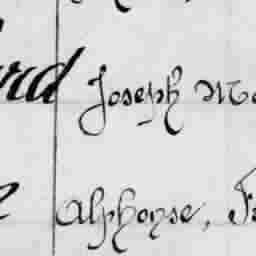 rd Joseph Ma
e Alphonse, Fr